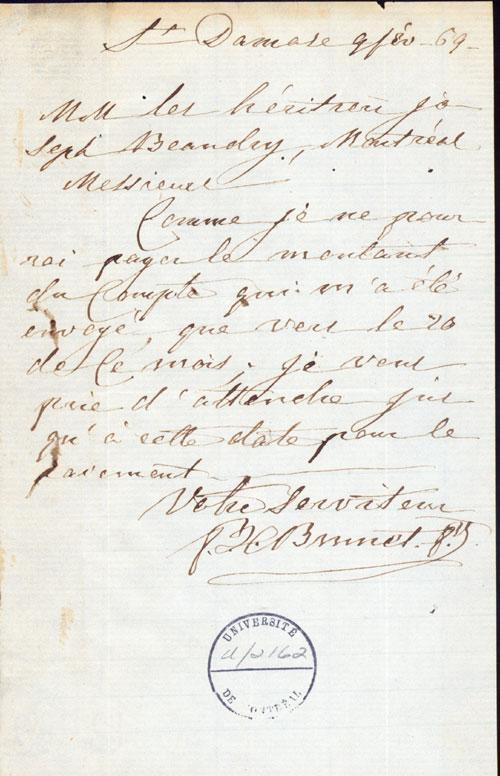 St Damase 9 fév - 69 -
MM les héritiers Jo
seph Beaudry, Montréal
Messieurs
Comme je ne pour
rai payer le montant
du Compte qui m'a été
envoyé, que vers le 20
de Ce mois, je vous
prie d'attendre jus
qu'à cette date pour le
paiement -
Votre Serviteur
Brunet
UNIVERSITÉ
U/2162
DE MONTRÉAL